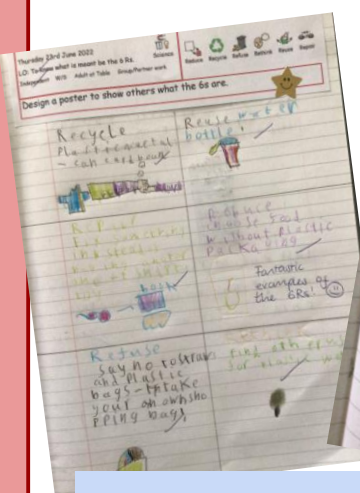 Thursday 23rd June 2022
Science
LO: To know what is meant be the 6 Rs.
Independent W/S Adult at Table Group/Partner work
Reduce Recycle Refuse Rethink Reuse Repair
Design a poster to show others what the 6s are.
Recycle
Plastic metal
- can cardboard
Reuse water
bottle!
Repair
fix something
instead of
Reduce
choose food
without plastic
packaging
Fantastic
examples of
the 6Rs!
Refuse
say no to straws
and plastic
bags - take
your own sho
pping bags
find other
for plastic